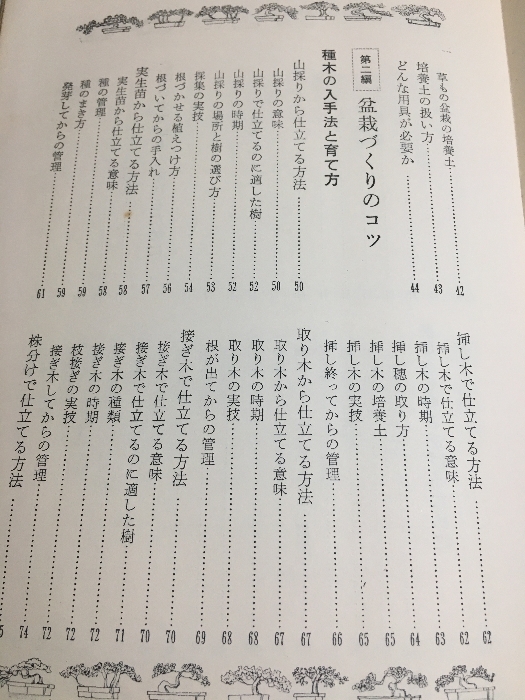 草もの盆栽の培養土……42
培養土の扱い方……43
どんな用具が必要か……44
第二編 盆栽づくりのコツ
種木の入手法と育て方
山採りから仕立てる方法……50
山採りの意味……50
山採りで仕立てるのに適した樹……52
山採りの時期……52
山採りの場所と樹の選び方……53
採集の実技……54
根づかせる植えつけ方……56
根づいてからの手入れ……57
実生苗から仕立てる方法……58
実生苗から仕立てる意味……58
種の管理……59
種のまき方……59
発芽してからの管理……61
挿し木で仕立てる方法……62
挿し木で仕立てる意味……62
挿し木の時期……63
挿し穂の取り方……64
挿し木の培養土……65
挿し木の実技……65
挿し終ってからの管理……66
取り木から仕立てる方法……67
取り木から仕立てる意味……67
取り木の時期……68
取り木の実技……68
根が出てからの管理……69
接ぎ木で仕立てる方法……70
接ぎ木で仕立てる意味……70
接ぎ木で仕立てるのに適した樹……71
接ぎ木の種類……72
接ぎ木の時期……72
枝接ぎの実技……72
接ぎ木してからの管理……74
株分けで仕立てる方法……